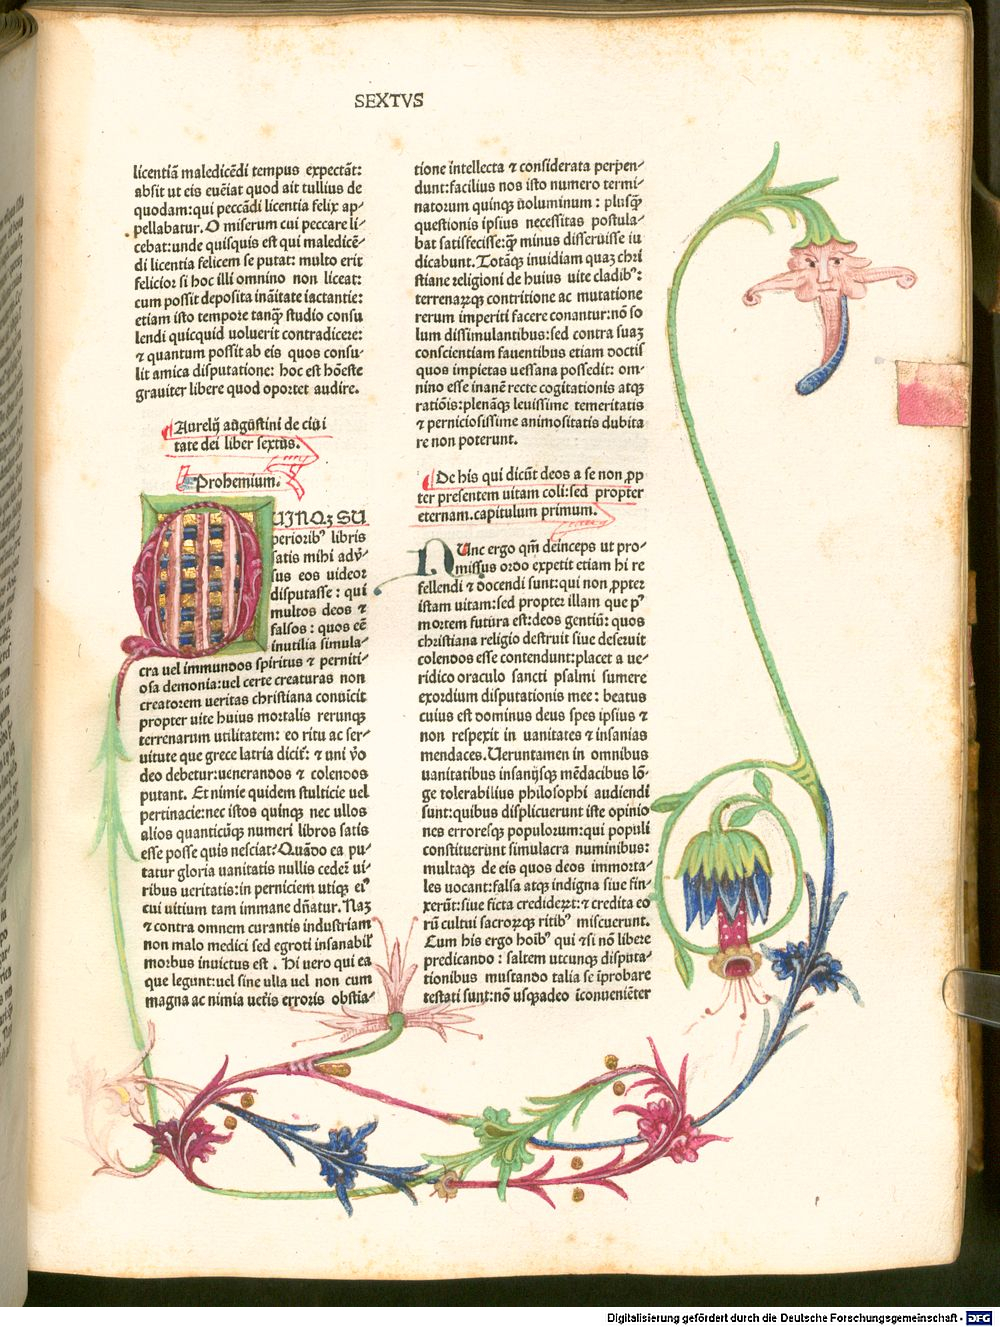 SEXTVS
licentiā maledicēdi tempus expectāt:
absit ut eis eueīat quod ait tullius de
quodam: qui peccādi licentia felix ap⸗
pellabatur. O miserum cui peccare li⸗
cebat: unde quisquis est qui maledicē⸗
di licentia felicem se putat: multo erit
felicior si hoc illi omnino non liceat:
cum possit deposita inaītate iactantie:
etiam isto tempore tanꝙ studio consu
lendi quicquid uoluerit contradicere:
⁊ quantum possit ab eis quos consu⸗
lit amica disputatione: hoc est hōeste
grauiter libere quod oportet audire.
Aurelij augustini de ciui
tate dei liber sextus.
Prohemium.
QUINQꝫ SU
perioribꝰ libris
satis mihi adv̉⸗
sus eos uideor
disputasse: qui
multos deos ⁊
falsos: quos eē
inutilia simula⸗
cra uel immundos spiritus ⁊ perniti⸗
osa demonia: uel certe creaturas non
creatorem ueritas christiana conuīcit
propter uite huius mortalis rerunqꝫ
terrenarum utilitatem: eo ritu ac ser⸗
uitute que grece latria dicit᷑: ⁊ uni v̉o
deo debetur: uenerandos ⁊ colendos
putant. Et nimie quidem stulticie uel
pertinacie: nec istos quinqꝫ nec ullos
alios quanticūqꝫ numeri libros satis
esse posse quis nesciat? Quādo ea pu⸗
tatur gloria uanitatis nullis ceder̄ ui⸗
ribus ueritatis: in perniciem utiqꝫ eiꝰ
cui uitium tam immane dn̄atur. Naꝫ
⁊ contra omnem curantis industriam
non malo medici sed egroti insanabil̓
morbus inuictus est. Hi uero qui ea
que legunt: uel sine ulla uel non cum
magna ac nimia uet̓is erroris obstia⸗
tione intellecta ⁊ considerata perpen⸗
dunt: facilius nos isto numero termi⸗
natorum quinqꝫ uoluminum: plusꝙ̄
questionis ipsius necessitas postula⸗
bat satisfecisse: ꝙ̄ minus disseruisse iu
dicabunt. Totāqꝫ inuidiam quaꝫ chri
stiane religioni de huius uite cladibꝰ:
terrenaꝝqꝫ contritione ac mutatione
rerum imperiti facere conantur: nō so
lum dissimulantibus: sed contra suaꝫ
conscientiam fauentibus etiam doctis
quos impietas uessana possedit: om⸗
nino esse inanē recte cogitationis atqꝫ
ratiōis: plenāqꝫ leuissime temeritatis
⁊ perniciosissime animositatis dubita
re non poterunt.
De his qui dicūt deos a se non ꝓp
ter presentem uitam coli: sed propter
eternam. capitulum primum.
Nunc ergo qm̄ deinceps ut pro⸗
missus ordo expetit etiam hi re
fellendi ⁊ docendi sunt: qui non ꝓpter
istam uitam: sed propter illam que pꝰ
mortem futura est: deos gentiū: quos
christiana religio destruit siue deseruit
colendos esse contendunt: placet a ue⸗
ridico oraculo sancti psalmi sumere
exordium disputationis mee: beatus
cuius est dominus deus spes ipsius ⁊
non respexit in uanitates ⁊ insanias
mendaces. Ueruntamen in omnibus
uanitatibus insanijsqꝫ mēdacibus lō⸗
ge tolerabilius philosophi audiendi
sunt: quibus displicuerunt iste opinio
nes erroresqꝫ populorum: qui populi
constituerunt simulacra numinibus:
multaqꝫ de eis quos deos immorta⸗
les uocant: falsa atqꝫ indigna siue fin⸗
xerūt: siue ficta crediderūt: ⁊ credita eo
rū cultui sacroꝝqꝫ ritibꝰ miscuerunt.
Cum his ergo hoībꝰ qui ⁊si nō libere
predicando: saltem utcunqꝫ disputa⸗
tionibus mustando talia se īprobare
testati sunt: nō usqꝫadeo īconueniēter
Digitalisierung gefördert durch die Deutsche Forschungsgemeinschaft - DFG